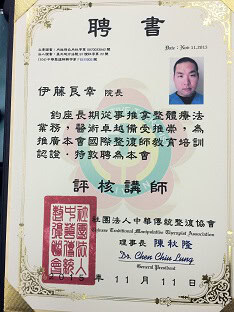 聘書
Date : Nov 11,2013
伊藤良幸 院長
鈞座長期從事推拿整體療法
業務，醫術卓越備受推崇，為
推廣本會國際整復師教育培訓
認證，特敦聘為本會
評核講師
社團法人中華傳統整復協會
Chinese Traditional Manipulative Therapist Association
理事長 陳秋隆
Dr. Chen Chiu Lung
General President
年 11 月 11 日